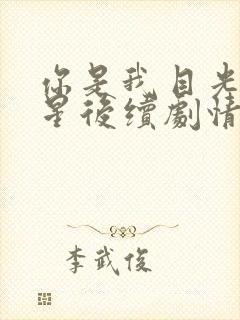 你是我目光
星後續劇情
李武俊